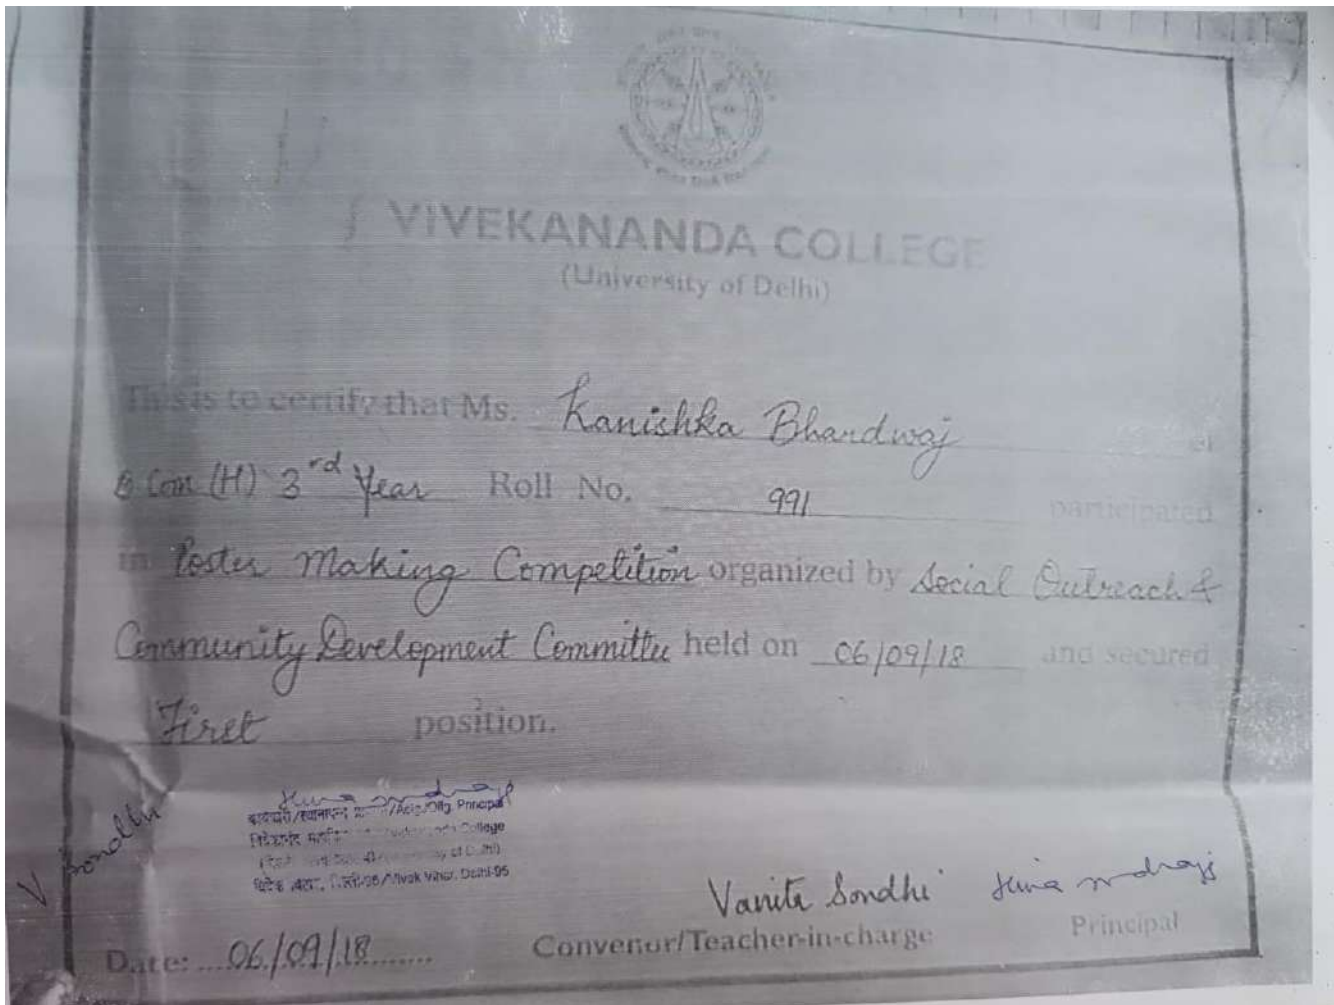 VIVEKANANDA COLLEGE
(University of Delhi)
This is to certify that Ms. Kanishka Bhardwaj of
B.Com (H) 3rd Year Roll No. 991 participated
in Poster Making Competition organized by Social Outreach &
Community Development Committee held on 06/09/18 and secured
First position.
V Sondhi
/Actg./Offg. Principal
College
विवेक विहार, दिल्ली-95/Vivek Vihar, Delhi-95
Vanita Sondhi
Date: ....06/09/18........ Convenor/Teacher-in-charge Principal